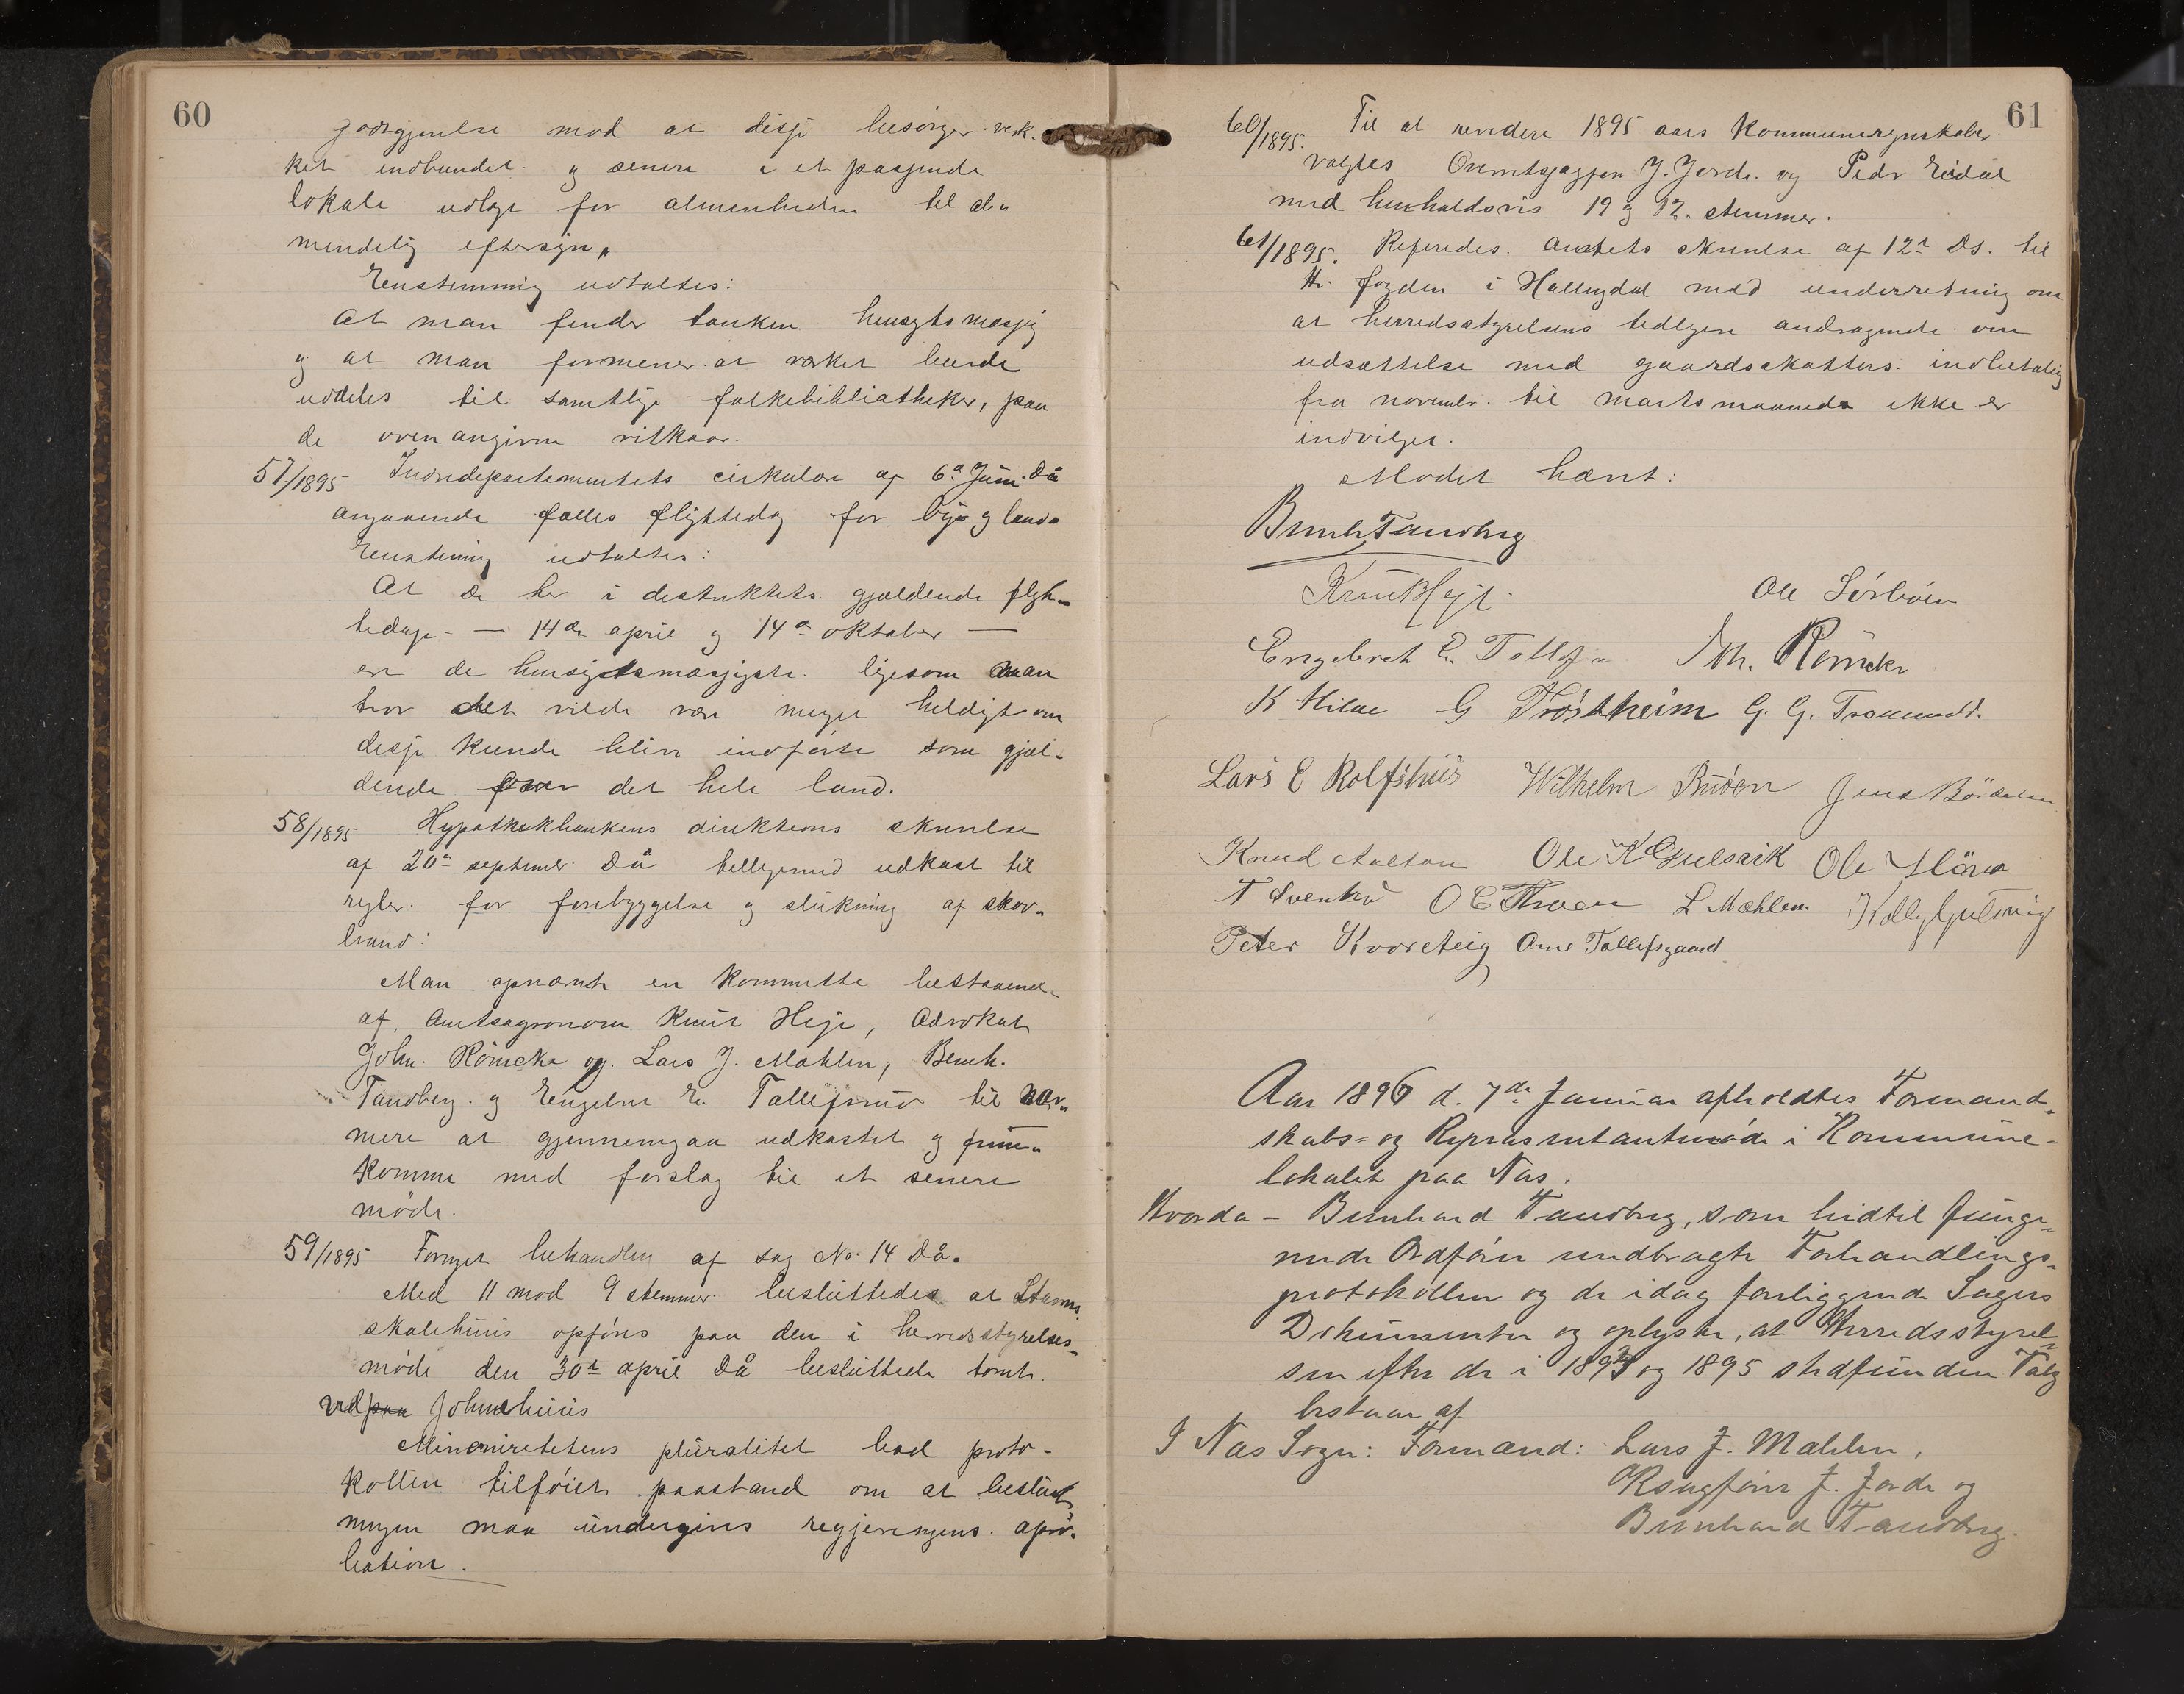 60
godtgjørelse mod at disse besørger vær-
ket indbundet og senere i et passende
lokale udlagt for almenheden til al-
mindelig eftersyn.
Enstemmig udtaltes:
At man finder tanken hensigtsmæssig
og at man formener at værket burde
uddeles til samtlige folkebibliotheker, paa
de ovenangivne vilkaar.
57/1895 Indredepartementets cirkulære af 6te Juni då
angaaende fælles flyttedag for by og land.
Enstemmig udtaltes:
At de her i distriktets gjældende flyt-
tedage – 14de april og 14de oktober –
er de hensigtsmæssigste ligesom man
tror det vilde være meget heldigt om
disse kunde blive indførte som gjæl-
dende over det hele land.
58/1895 Hypothekbankens direktions skrivelse
af 20de septembr då tilligemed udkast til
regler for forebyggelse og slukning af skov-
brand:
Man opnævnte en kommitte bestaaende
af, Amtsagronom Knut Heje, Advokat
John. Römcke og Lars J. Mæhlen, Bernh.
Tandberg og Engebret E. Tollefsrud til nær-
mere at gjennemgaa udkastet og frem-
komme med forslag til et senere
møde.
59/1895 Fornyet behandling af sag No 14 då.
Med 11 mod 9 stemmer besluttedes at
skolehuus opføres paa den i herredsstyrelses-
møde den 30te april då besluttede tomt
ved paa
Minoriretetens pluralitet bad proto-
kollen tilføiet paastand om at beslut-
ningen maa undergives regjeringens apro-
bation.
61
60/1895. Til at revidere 1895 aars Kommuneregnskaber
valgtes J. Jorde og Peder Eidal
med henholdsvis 19 og 12 stemmer.
61/1895. Refereredes Amtets skrivelse af 12te ds. til
Hr. fogden i Hallingdal med underretning om
at herredsstyrelsens tidligere andragende om
udsættelse med gaardsskattens indbetaling
fra novembr. til marts maaned ikke er
indvilget.
Mødet hævet:
Bernh Tandberg
Knut Heje Ole Sørbøen
Engebret E. Tollefs Joh. Römcke
K Hilme G Trøstheim G. G. Tromd.
Lars E Rolfshus Wilhelm Bruøen Jens Bøidalen
Knud Ole K Gulsvik Ole
T Svenkerud O E L. Mæhlen Gulsvig
Peter Kvorsteig Arne Tollefsgaard
Aar 1896 d. 7de Januar afholdtes Formand-
skabs- og Repræsentantmøde i Kommune-
lokalet paa Næs.
Hvorda – Bernhard Tandberg, som hidtil funge-
rende Ordfører medbragte Forhandlings-
protokollen og de idag foreliggende Sagers
Dokumenter og oplyste, at Herredsstyrel-
sen efter de i 1893 og 1895 stedfundne Valg
bestaar af
I Næs Sogn: Formænd: Lars J. Mæhlen,
Oksagfører J. Jorde og
Bernhard Tandberg.